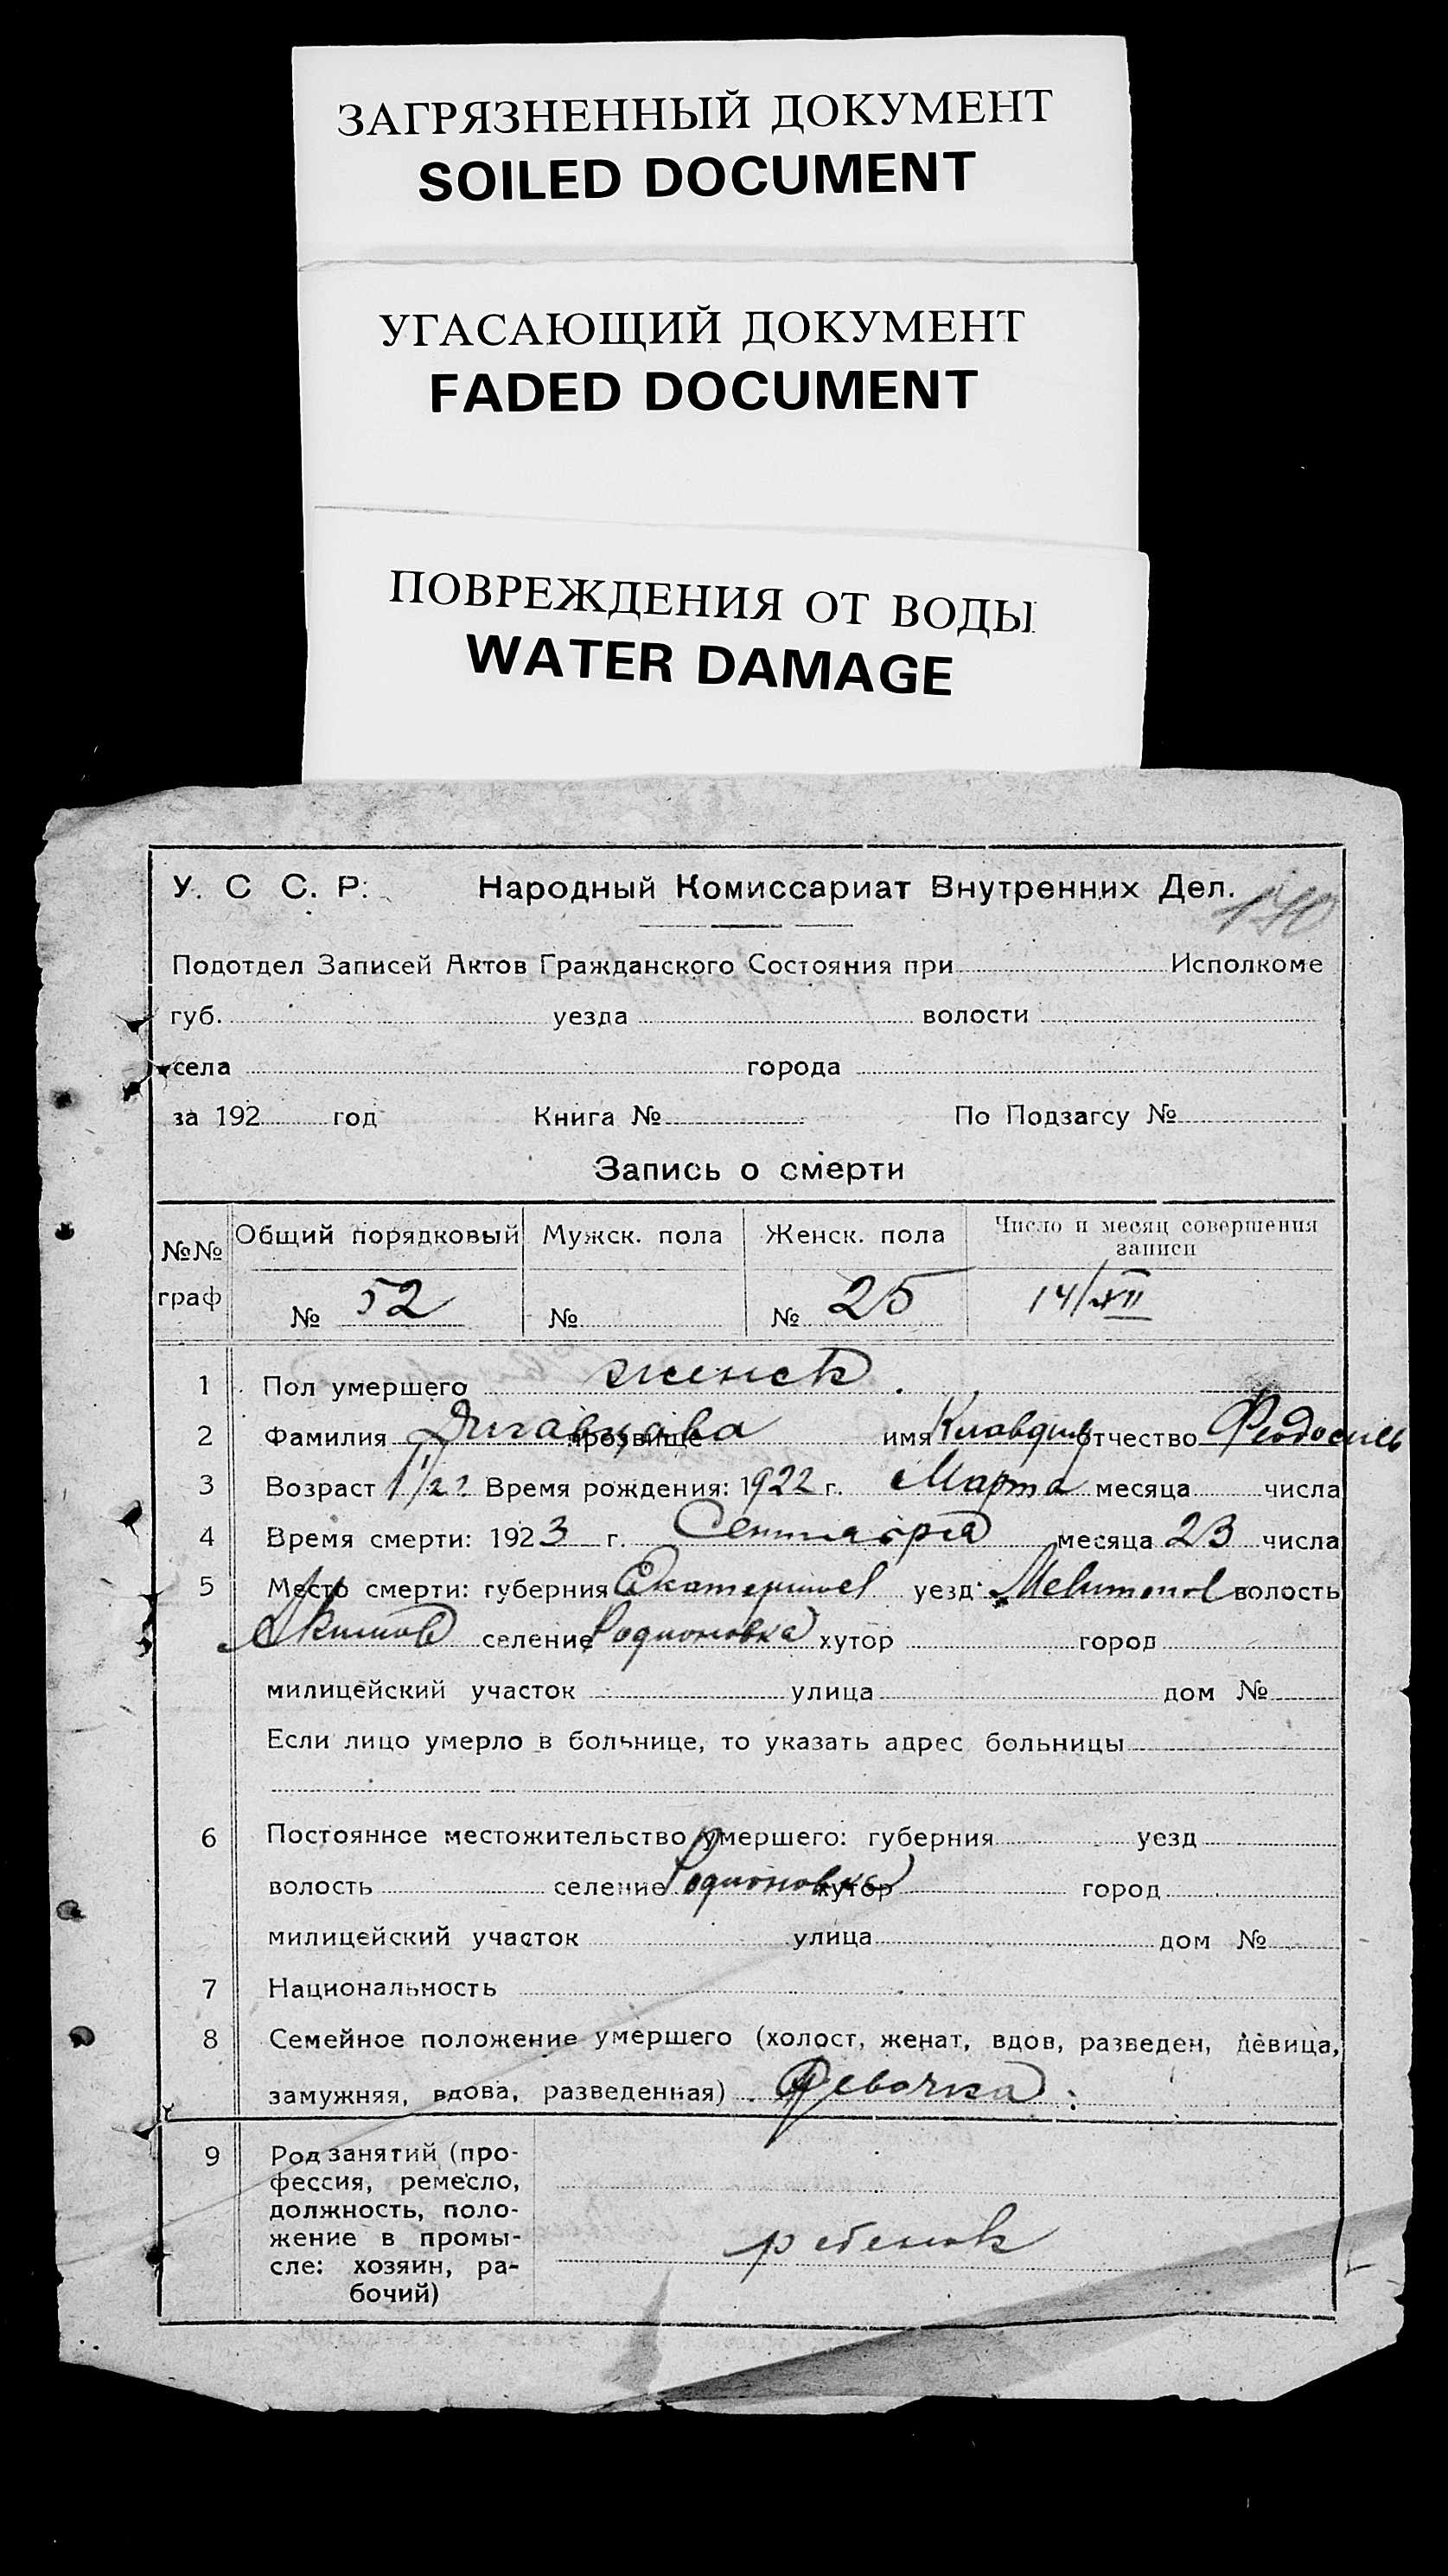 ЗАГРЯЗНЕННЫЙ ДОКУМЕНТ
SOILED DOCUMENT
УГАСАЮЩИЙ ДОКУМЕНТ
FADED DOCUMENT
ПОВРЕЖДЕНИЯ ОТ ВОДЫ
WATER DAMAGE
У. С С. Р. Народный Комиссариат Внутренних Дел.
Подотдел Записей Актов Гражданского Состояния при Исполкоме
губ. уезда волости
села города
за 192 год Книга № По Подзагсу №
Запись о смерти
№№ граф Общий порядковый Мужск. пола Женск. пола Число и месяц совершения записи
№ 52 № № 25 14/XII
1 Пол умершего женск.
2 Фамилия прозвище имя Клавдия отчество Феодосиев
3 Возраст 1 1/2 г. Время рождения: 1922 г. Марта месяца числа
4 Время смерти: 1923 г. Сентября месяца 23 числа
5 Место смерти: губерния Екатеринос уезд Мелитопол волость
Акимов селение Родионовка хутор город
милицейский участок улица дом №
Если лицо умерло в больнице, то указать адрес больницы
6 Постоянное местожительство умершего: губерния уезд
волость селение Родионовка хутор город
милицейский участок улица дом №
7 Национальность
8 Семейное положение умершего (холост, женат, вдов, разведен, девица,
замужняя, вдова, разведенная) Девочка
9 Род занятий (про-
фессия, ремесло,
должность, поло-
жение в промы-
сле: хозяин, ра-
бочий)
ребенок